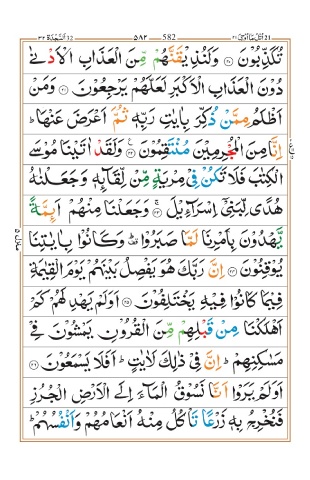 582
تُكَذِّبُوْنَ ﴿۲۰﴾ وَلَنُذِيْقَنَّهُمْ مِّنَ الْعَذَابِ الْاَدْنٰى
دُوْنَ الْعَذَابِ الْاَكْبَرِ لَعَلَّهُمْ يَرْجِعُوْنَ ﴿۲۱﴾ وَمَنْ
اَظْلَمُ مِمَّنْ ذُكِّرَ بِاٰيٰتِ رَبِّهٖ ثُمَّ اَعْرَضَ عَنْهَا ؕ
اِنَّا مِنَ الْمُجْرِمِيْنَ مُنْتَقِمُوْنَ ﴿۲۲﴾ وَلَقَدْ اٰتَيْنَا مُوْسَى
الْكِتٰبَ فَلَا تَكُنْ فِىْ مِرْيَةٍ مِّنْ لِّقَآئِهٖ وَجَعَلْنٰهُ
هُدًى لِّبَنِىْۤ اِسْرَآءِيْلَ ﴿۲۳﴾ وَجَعَلْنَا مِنْهُمْ اَئِمَّةً
يَّهْدُوْنَ بِاَمْرِنَا لَمَّا صَبَرُوْا ؕ وَكَانُوْا بِاٰيٰتِنَا
يُوْقِنُوْنَ ﴿۲۴﴾ اِنَّ رَبَّكَ هُوَ يَفْصِلُ بَيْنَهُمْ يَوْمَ الْقِيٰمَةِ
فِيْمَا كَانُوْا فِيْهِ يَخْتَلِفُوْنَ ﴿۲۵﴾ اَوَلَمْ يَهْدِ لَهُمْ كَمْ
اَهْلَكْنَا مِنْ قَبْلِهِمْ مِّنَ الْقُرُوْنِ يَمْشُوْنَ فِىْ
مَسٰكِنِهِمْ ؕ اِنَّ فِىْ ذٰلِكَ لَاٰيٰتٍ ؕ اَفَلَا يَسْمَعُوْنَ ﴿۲۶﴾
اَوَلَمْ يَرَوْا اَنَّا نَسُوْقُ الْمَآءَ اِلَى الْاَرْضِ الْجُرُزِ
فَنُخْرِجُ بِهٖ زَرْعًا تَاْكُلُ مِنْهُ اَنْعَامُهُمْ وَاَنْفُسُهُمْ ؕ